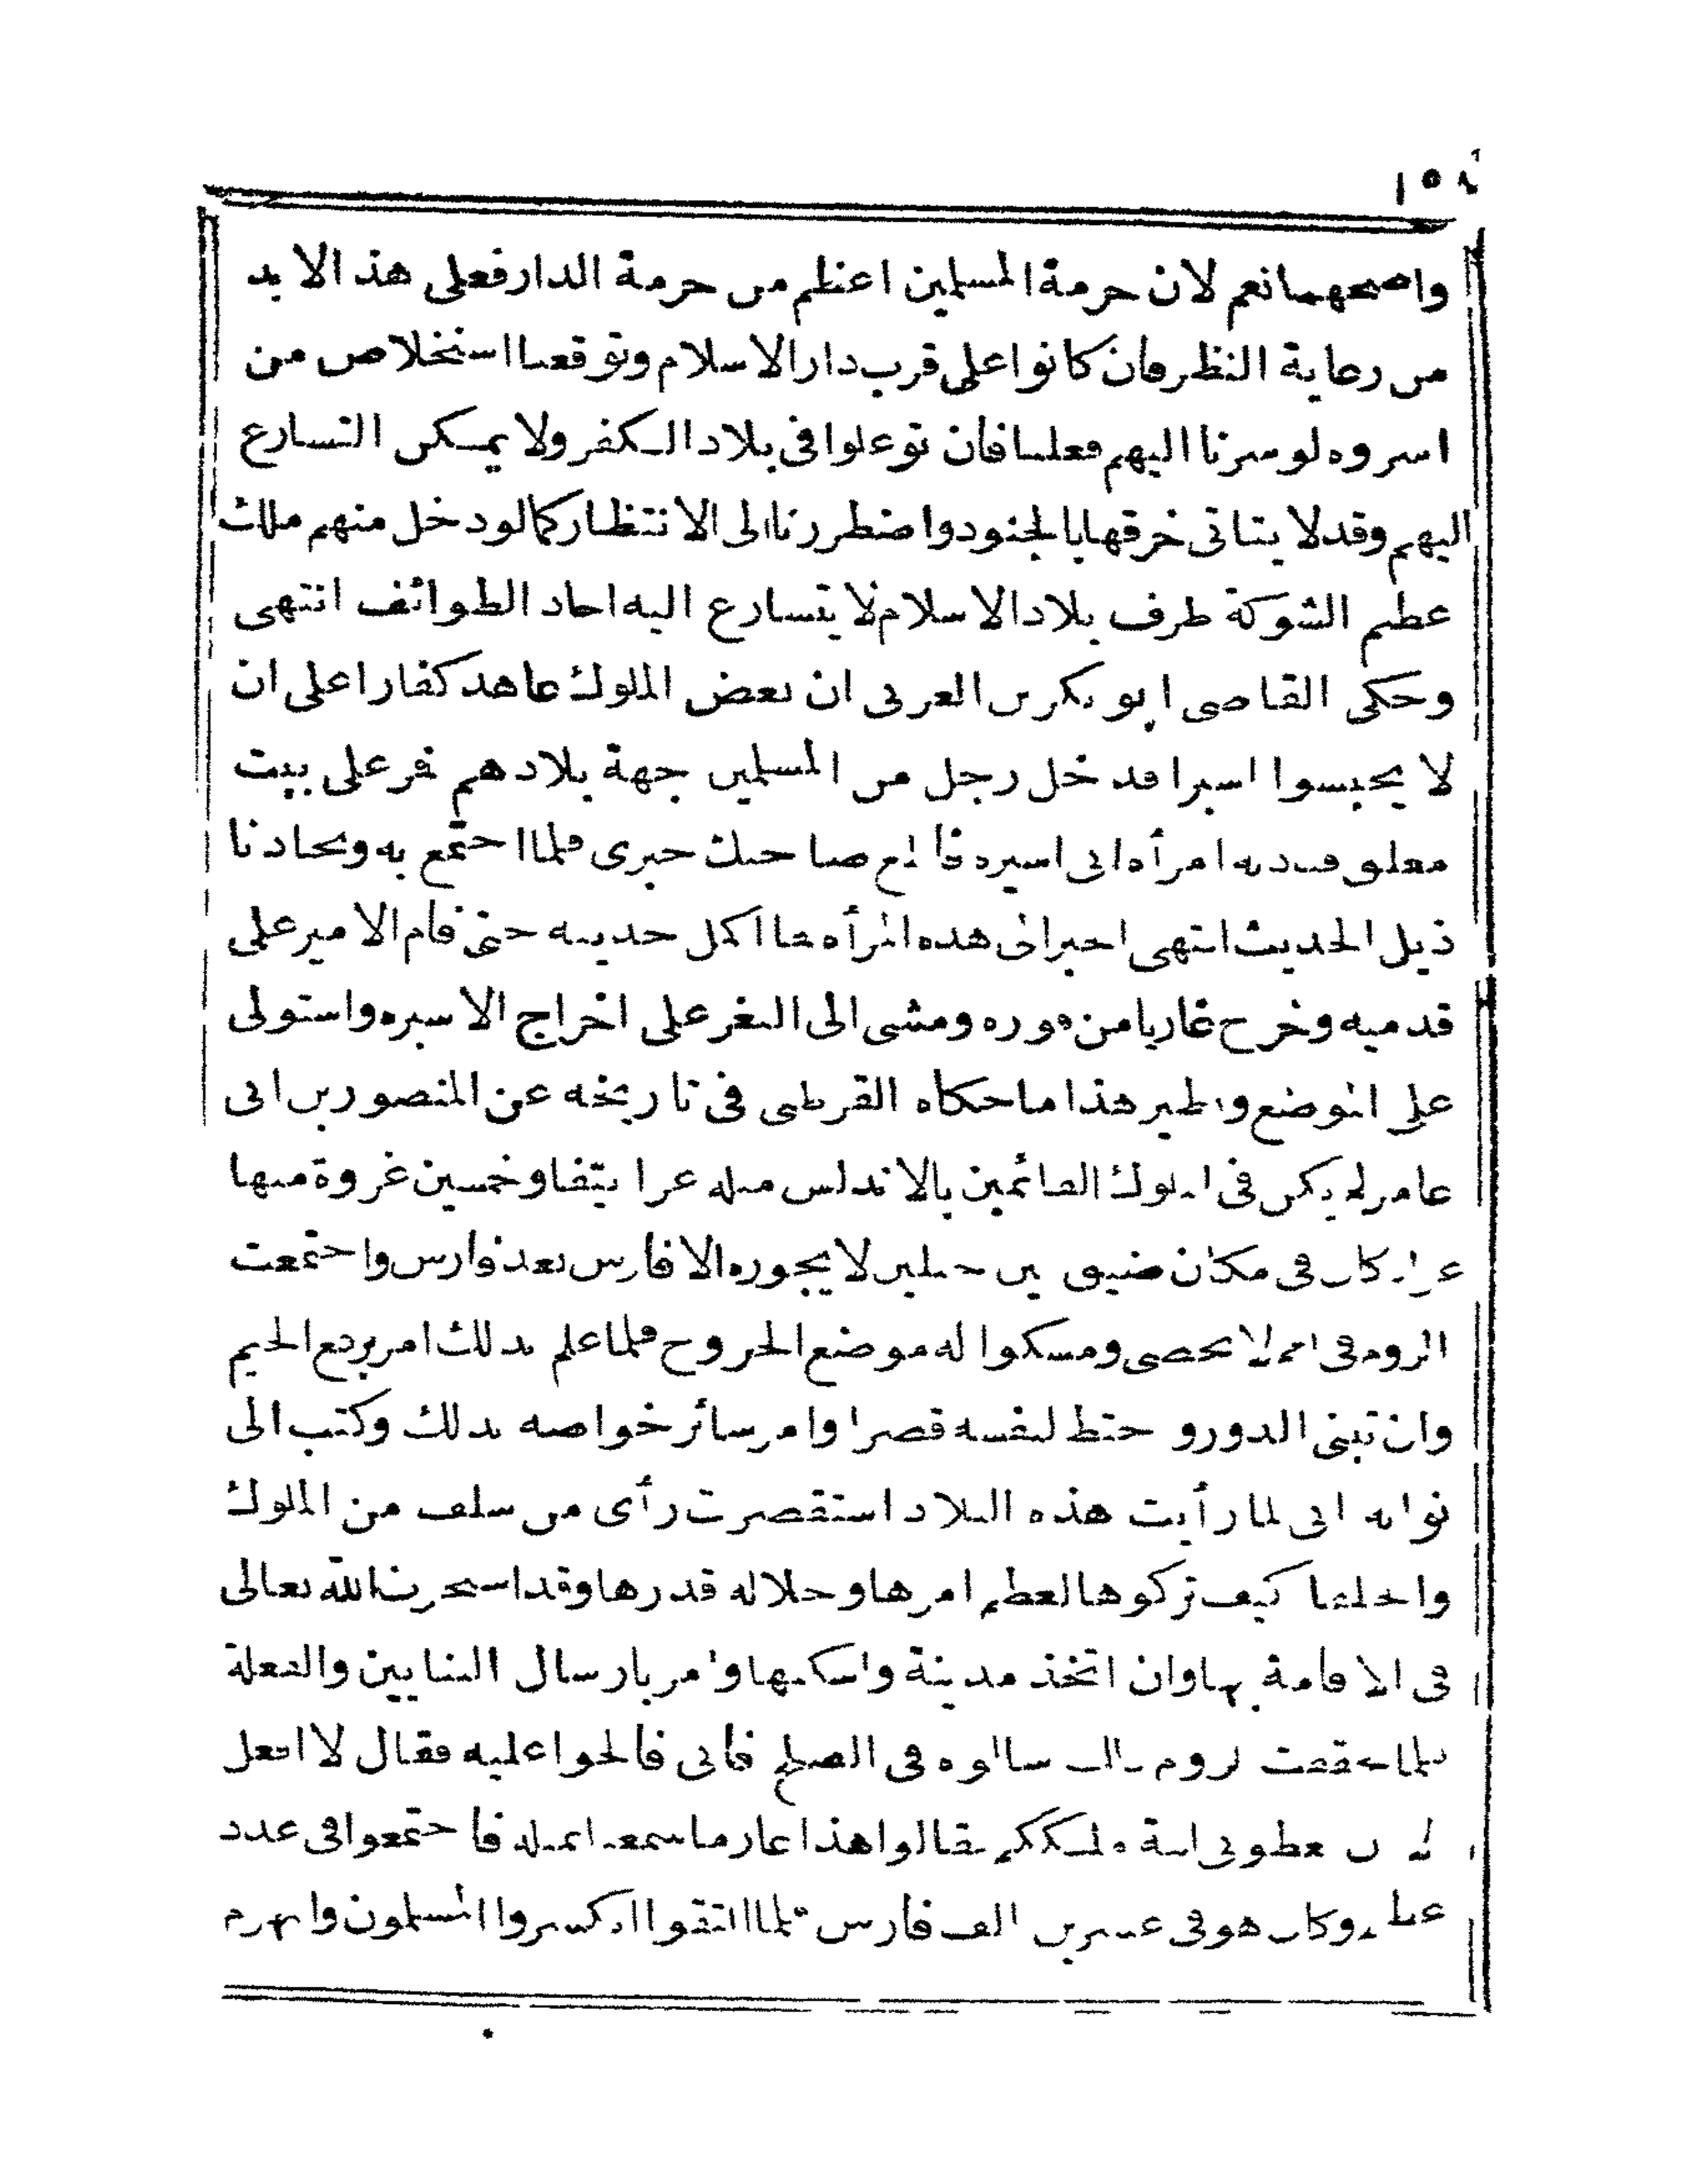 ١٥٨
واصحهما نعم لان حرمة المسلمين اعظم من حرمة الدار فعلى هذ الا بد
من رعاية النظر فان كانوا على قرب دار الاسلام وتوقعنا استخلاص من
اسروه لو سرنا اليهم فعلنا فان توغلوا فى بلاد الكفر ولا يمكن التسارع
اليهم وقد لا يتاتى خرقها بالجنود واضطررنا الى الانتظار كما لو دخل منهم ملك
عظيم الشوكة طرف بلاد الاسلام لا يتسارع اليه احاد الطوائف انتهى
وحكى القاضى ابو بكر بن العربى ان بعض الملوك عاهد كفارا على ان
لا يحبسوا اسيرا فدخل رجل من المسلمين جهة بلادهم فمر على بيت
مغلق فنادته امرأة انى اسيرة فابلغ صاحبك خبرى فلما اجتمع به وتجاذبا
ذيل الحديث انتهى الخبر الى هذه المرأة فما اكمل حديثه حتى قام الامير على
قدميه وخرج غازيا من فوره ومشى الى الثغر على اخراج الاسيره واستولى
على الموضع ونظير هذا ما حكاه القرطبى فى تاريخه عن المنصور بن ابى
عامر لم يكن فى الملوك القائمين بالاندلس مثله غزا نيفا وخمسين غزوة منها
غزاة كان فى مكان ضيق بين جبلين لا يجوزه الا فارس بعد فارس واجتمعت
الروم فى امم لا تحصى ومسكوا له موضع الخروج فلما علم بذلك امر برفع الخيم
وان تبنى الدور و ختط لنفسه قصرا وامر سائر خواصه بذلك وكتب الى
نوابه انى لما رأيت هذه البلاد استقصرت رأى من سلف من الملوك
والخلفا كيف تركوها لعظم امرها وجلاله قدرها وقد استخرت الله تعالى
فى الاقامة بها وان اتخذ مدينة واسكنها وامر بارسال البنايين والفعلة
فلما تحققت الروم سالوه فى الصلح فابى فالحوا عليه فقال لا افعل
تعطونى ابنة ملككم فقالوا هذا عار ما سمعنا بمثله فاجتمعوا فى عدد
عظيم وكان هو فى عشرين الف فارس فلما التقوا انكسروا المسلمون وانهزم